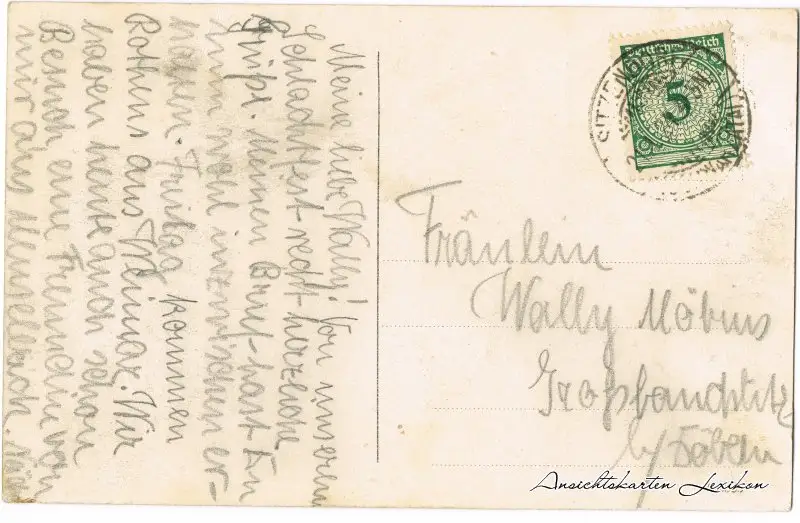 Meine liebe Wally! Von unserem
Schlachtfest recht herzliche
Grüße. Meinen Brief hast Du
nun wohl inzwischen er-
halten. Freitag kommen
Rothens aus Weimar. Wir
haben heute auch schon
Besuch eine Freundin von
mir aus
Deutsches Reich
5
SITZENDORF
Fräulein
Wally Möbius
Großbauchlitz
b/ Döbeln
Ansichtskarten Lexikon